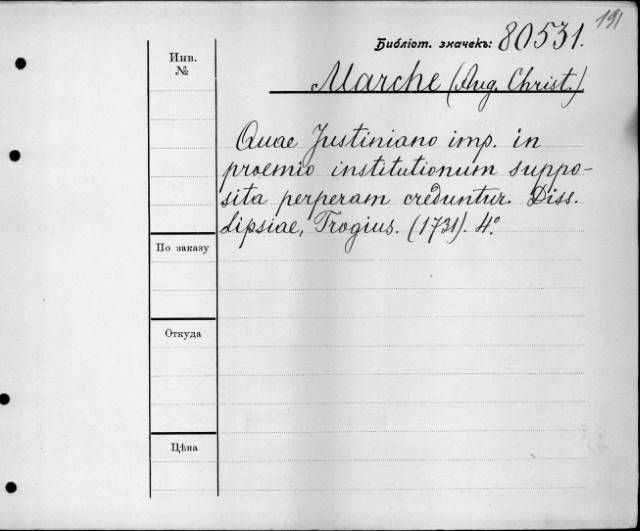 191
Библіот. значекъ: 80531.
Инв.
№
Marche (Aug. Christ.)
Quae Justiniano imp. in
proemio institutionum suppo-
sita perperam creduntur. Diss.
Lipsiae, Trogius. (1731). 4°.
По заказу
Откуда
Цѣна